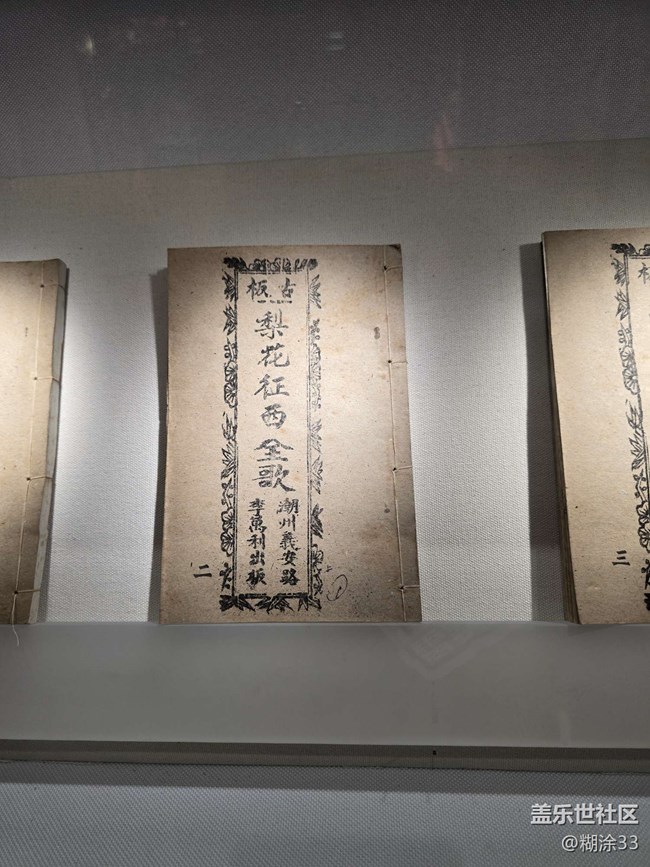 古板
梨花征西全歌
潮州義安路
李萬利出版
二
三
盖乐世社区
@糊涂33